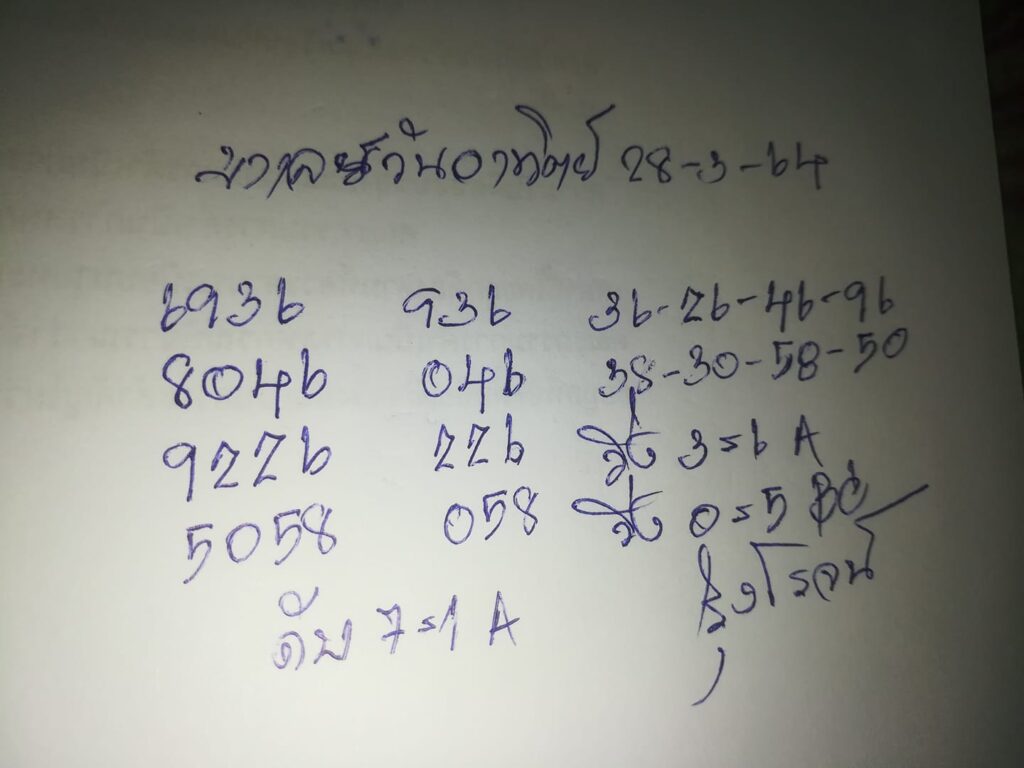 มาเลย์วันอาทิตย์ 28-3-64
6936 936 36-26-46-96
8046 046 38-30-58-50
9226 226 วิ่ง 3=6 A
5058 058 วิ่ง 0=5 BC
ดับ 7=1 A รุ่งโรจน์